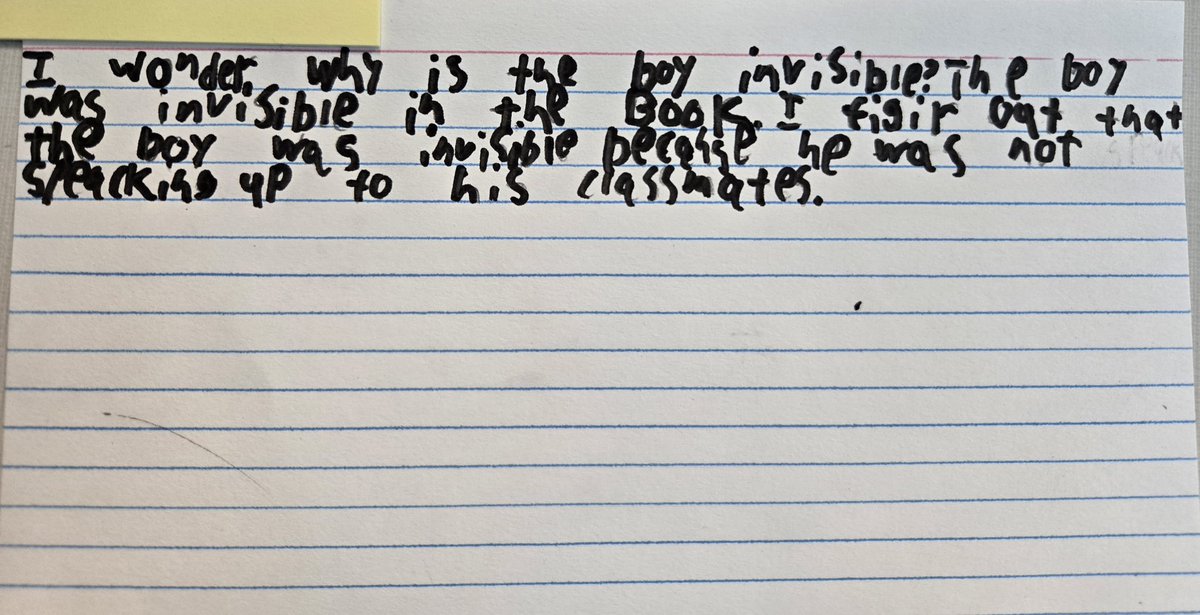 I wonder, why is the boy invisible? The boy
was invisible in the Book. I figir out that
the boy was invisible because he was not
speacking up to his classmates.